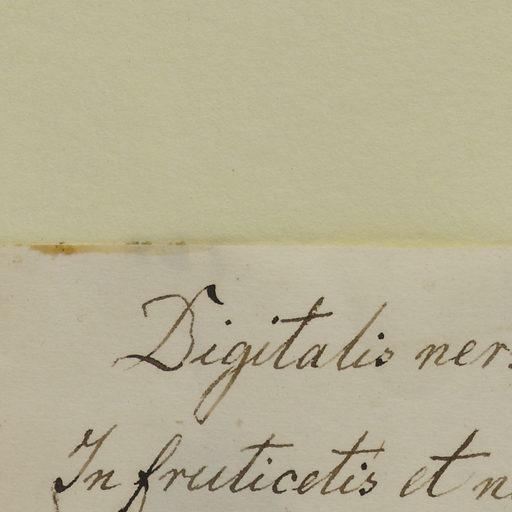 Digitalis ner
In fruticetis et n